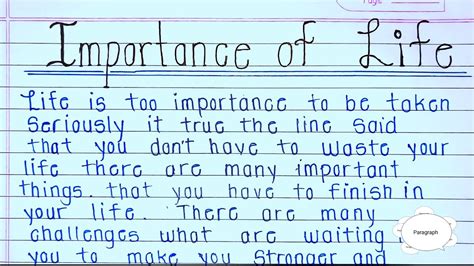 Page
Importance of Life
Life is too importance to be taken
seriously it true the line said
that you don't have to waste your
life there are many important
things. that you have to finish in
your life. There are many
challenges what are waiting
you to make you stronger and
Paragraph